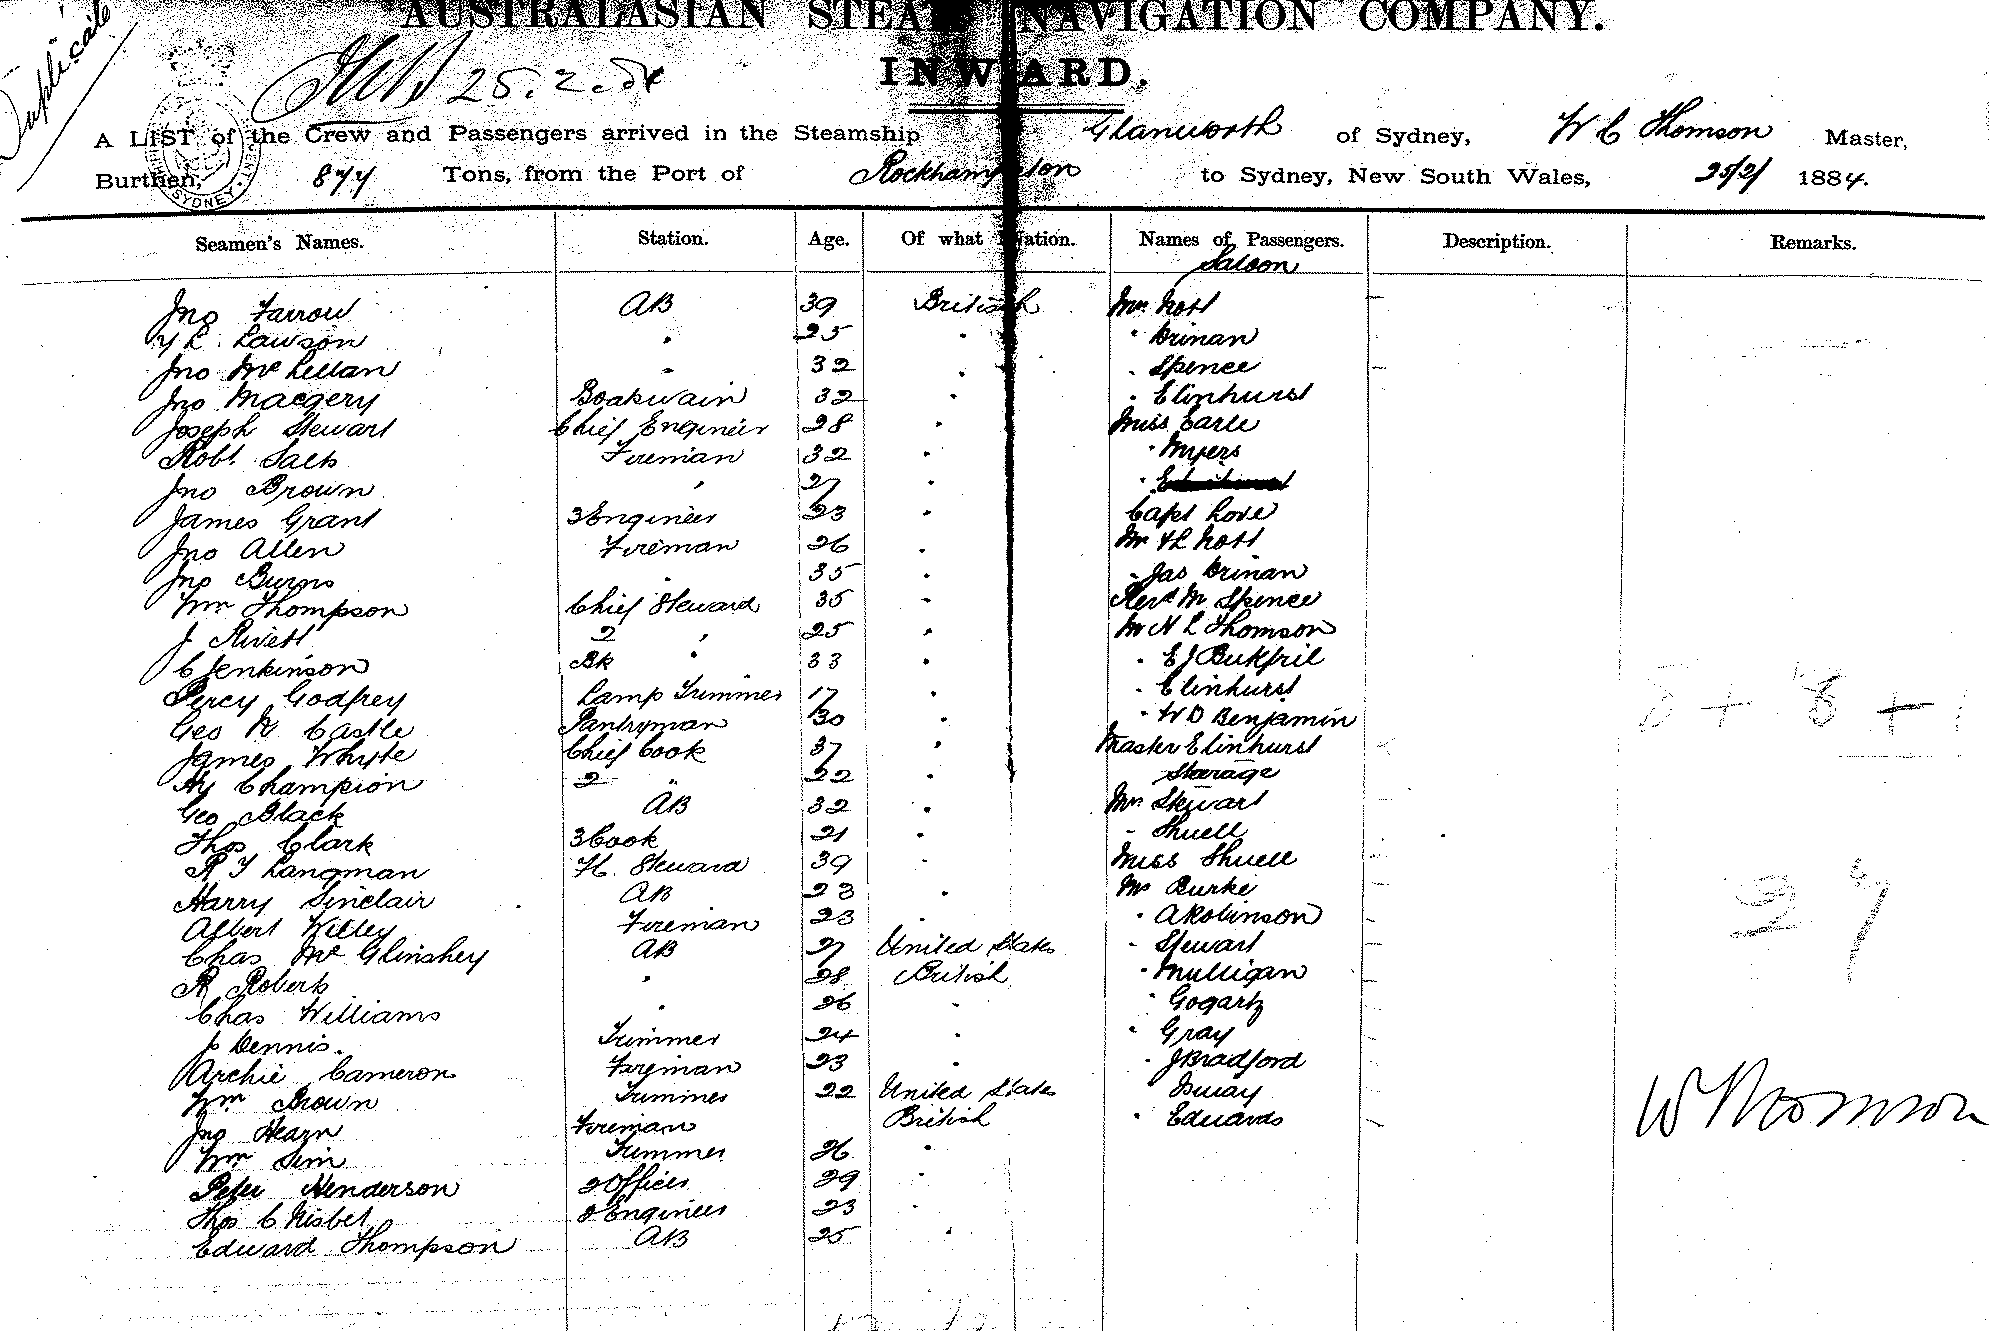 Duplicate
AUSTRALASIAN STEAM NAVIGATION COMPANY.
25.2.84
INWARD.
A LIST of the Crew and Passengers arrived in the Steamship Glanworth of Sydney, W C Thomson Master,
Burthen, 877 Tons, from the Port of Rockhampton to Sydney, New South Wales, 25/2/ 1884.
SYDNEY
Seamen's Names. Station. Age. Of what Nation. Names of Passengers. Description. Remarks.
Saloon
Jno Farrow AB 39 British Mrs Nott
Y L Lawson " 25 " " Brinan
Jno McLellan " 32 " " Spence
Jno Macgery Boatswain 32 " " Elinhurst
Joseph Stewart Chief Engineer 28 " Miss Earle
Robt Salts Fireman 32 " " Myers
Jno Brown " 27 " "
James Grant 3 Engineer 23 " Capt Love
Jno Allen Fireman 26 " Mr H L Nott
Jno Burns " 35 " " Jas Brinan
Wm Thompson Chief Steward 35 " Revd Mr Spence
J Rivett 2 " 25 " Mr N L Thomson
C Jenkinson Bk " 33 " " E J
Percy Godfrey Lamp Trimmer 17 " " Elinhurst
Geo W Castle Pantryman 30 " " W D Benjamin
James Whyte Chief Cook 37 " Master Elinhurst
Hy Champion 2 " 22 " Steerage
Geo Black AB 32 " Mrs Stewart
Thos Clark 3 Cook 21 " " Shuell
R Y Langman F.C. Steward 39 " Miss Shuell
Harry Sinclair AB 23 " Mr Burke
Albert Willey Fireman 23 " " A Robinson
Chas McGlinshey AB 27 United States " Stewart
R Roberts " 28 British " Mulligan
Chas Williams " 26 " " Gogartz
J Dennis. Trimmer 24 " " Gray
Archie Cameron Fireman 23 " " J Bradford
Wm Brown Trimmer 22 United States
Jno Hearn Fireman British " Edwards
Wm Sim Trimmer 26 "
Peter Henderson 2 Officer 29 "
Thos C Nisbet 2 Engineer 23 "
Edward Thompson AB 25 "
8 + 8 + 1
27
W Thomson